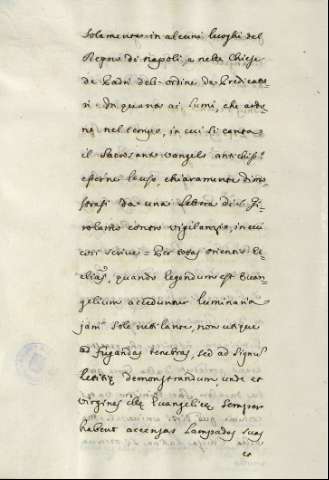 Solamente in alcuni luoghi del
Regno di Napoli, e nelle Chiese
de Padri dell'ordine de Predicato-
ri. In quanto ai lumi, che arde-
no nel tempo, in cui si canta
il Sacrosanto Vangelo antichiss.º
esserne l'uso, chiaramente dimo-
strasi da una lettera di S. Gi-
rolamo contro Vigilanzio, in cui
così scrive = Per totas orientis Ec-
clesias, quando legendum est Evan-
gelium accenduntur luminaria
jam Sole rutilante, non utique
ad fugandas tenebras, sed ad Signũ
letitię demonstrandum, unde et
Virgines illę Evangelicę Semper
habent accensas Lampades suas